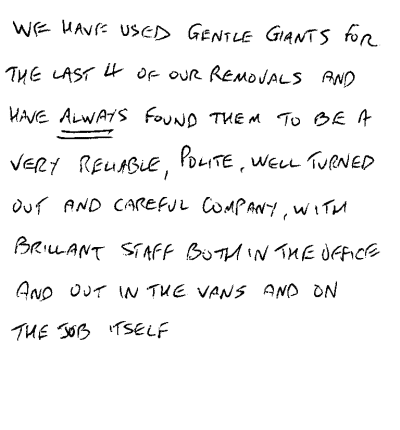 WE HAVE USED GENTLE GIANTS FOR
THE LAST 4 OF OUR REMOVALS AND
HAVE ALWAYS FOUND THEM TO BE A
VERY RELIABLE, POLITE, WELL TURNED
OUT AND CAREFUL COMPANY, WITH
BRILLANT STAFF BOTH IN THE OFFICE
AND OUT IN THE VANS AND ON
THE JOB ITSELF